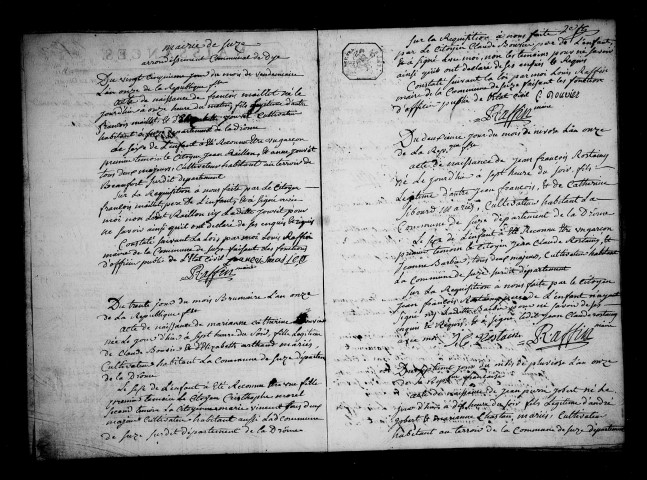 mairie de Suze
arrondissement Communal de Dye
Du vingt cinquieme jour du mois de vendemiaire
L'an onze de la Republique fse
acte de naissance de françois maillet né le
jourdhui a onze heure du matin fils legitime d'autre
françois maillet, et d' jouvet Cultivateur
habitant a Suze departement de la drome
Le Sexe de L'enfant a été Reconnu être un garçon
premier temoin le Citoyen jean Raillon, et anne jouvet
tous deux majeurs, Cultivateur habitant au terroir de
Beaufort susdit departement
Sur la Requisition a nous faite par le Citoyen
françois maillet pere de L'enfant, et a signé avec
moi non ledit Raillon ny Ladite jouvet pour
ne savoir ainsi quil ont declaré de ce enquis et requis
Constaté suivant la Loi, par moi Louis Raffin
maire de la Commune de Suze faisant les fonctions
d'officier public de l'Etat Civil françois maillet
Raffin maire
Du trente jour du mois Brumaire L'an onze
de La Republique fse
Acte de naissance de marianne Catherine Bouvier
née Le jour d'hui a Sept heure du Soir, fille Legitime
de Claude Bouvier et d'Elizabeth arthaud mariés,
Cultivateur habitant La Commune de Suze departement
de la Drôme
Le Sexe de L'enfant a été Reconnu être une fille
premier temoin Le Citoyen Cristophe moret
Second temoin La Citoyenne marie vincent tous deux
majeurs Cultivateur habitant aussi La Commune
de Suze Susdit departement de la Drôme
Sur la Requisition a nous faite
par Le Citoyen Claude Bouvier pere de L'enfant,
et a Signé avec moi, non les temoins pour ne savoir
ainsi quils ont declaré de ce enquis et Requis
Constaté Suivant la Loi par moi Louis Raffin
maire de la Commune de Suze faisant les fonctions
d'officier public de l'etat civil C Bouvier
Raffin maire
Du deuxieme jour du mois de nivose L'an onze
de La Rep. fse
Acte de naissance de jean françois Rostaing
né Le jourdhui a Sept heure du Soir, fils
Legitime d'autre jean françois, et de Catherine
mariés, Cultivateur habitant La
Commune de Suze departement de La Drôme
Le Sexe de L'enfant a été Reconnu être un garçon
premier temoin Le citoyen jean Claude Rostaing, et
Jeanne Barbe, tous deux majeurs, Cultivateur habitant
La Commune de Suze Susdit departement
Sur La Requisition a nous faite par Le citoyen
jean françois Rostaing pere de L'enfant
Signé ny Ladite Barbe pour ne Savoir de ce
enquis et Requis, et a Signé Ledit jean Claude Rostaing
avec moi J C Rostain Raffin maire
Du septieme jour du mois de pluviose L'an onze
de la republique française
acte de naissance de jean pierre gobert né Le
jour d'hui a heure du Soir fils Legitime d'andré
gobert et marianne Chastan mariés, Cultivateur
habitant au terroir de La Commune de Suze departement